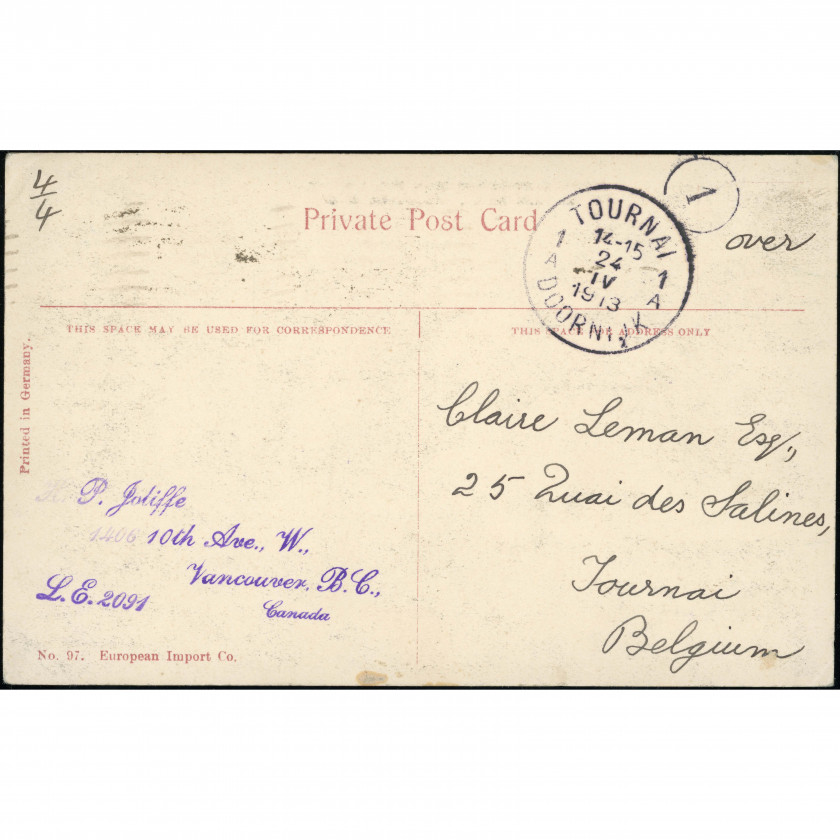 4/4
Private Post Card
1
over
TOURNAI
14-15
24
IV
1913
1 A
1 A
DOORNIJK
THIS SPACE MAY BE USED FOR CORRESPONDENCE
THIS SPACE FOR ADDRESS ONLY
Printed in Germany.
Claire Leman Esq.,
25 Quai des Salines,
Tournai
Belgium
P. Joliffe
1406 10th Ave., W.,
Vancouver, B.C.,
Canada
L.E. 2091
No. 97. European Import Co.